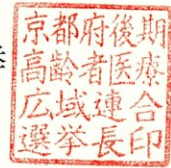 京都府後期
高齢者医療
広域連合
選挙長印